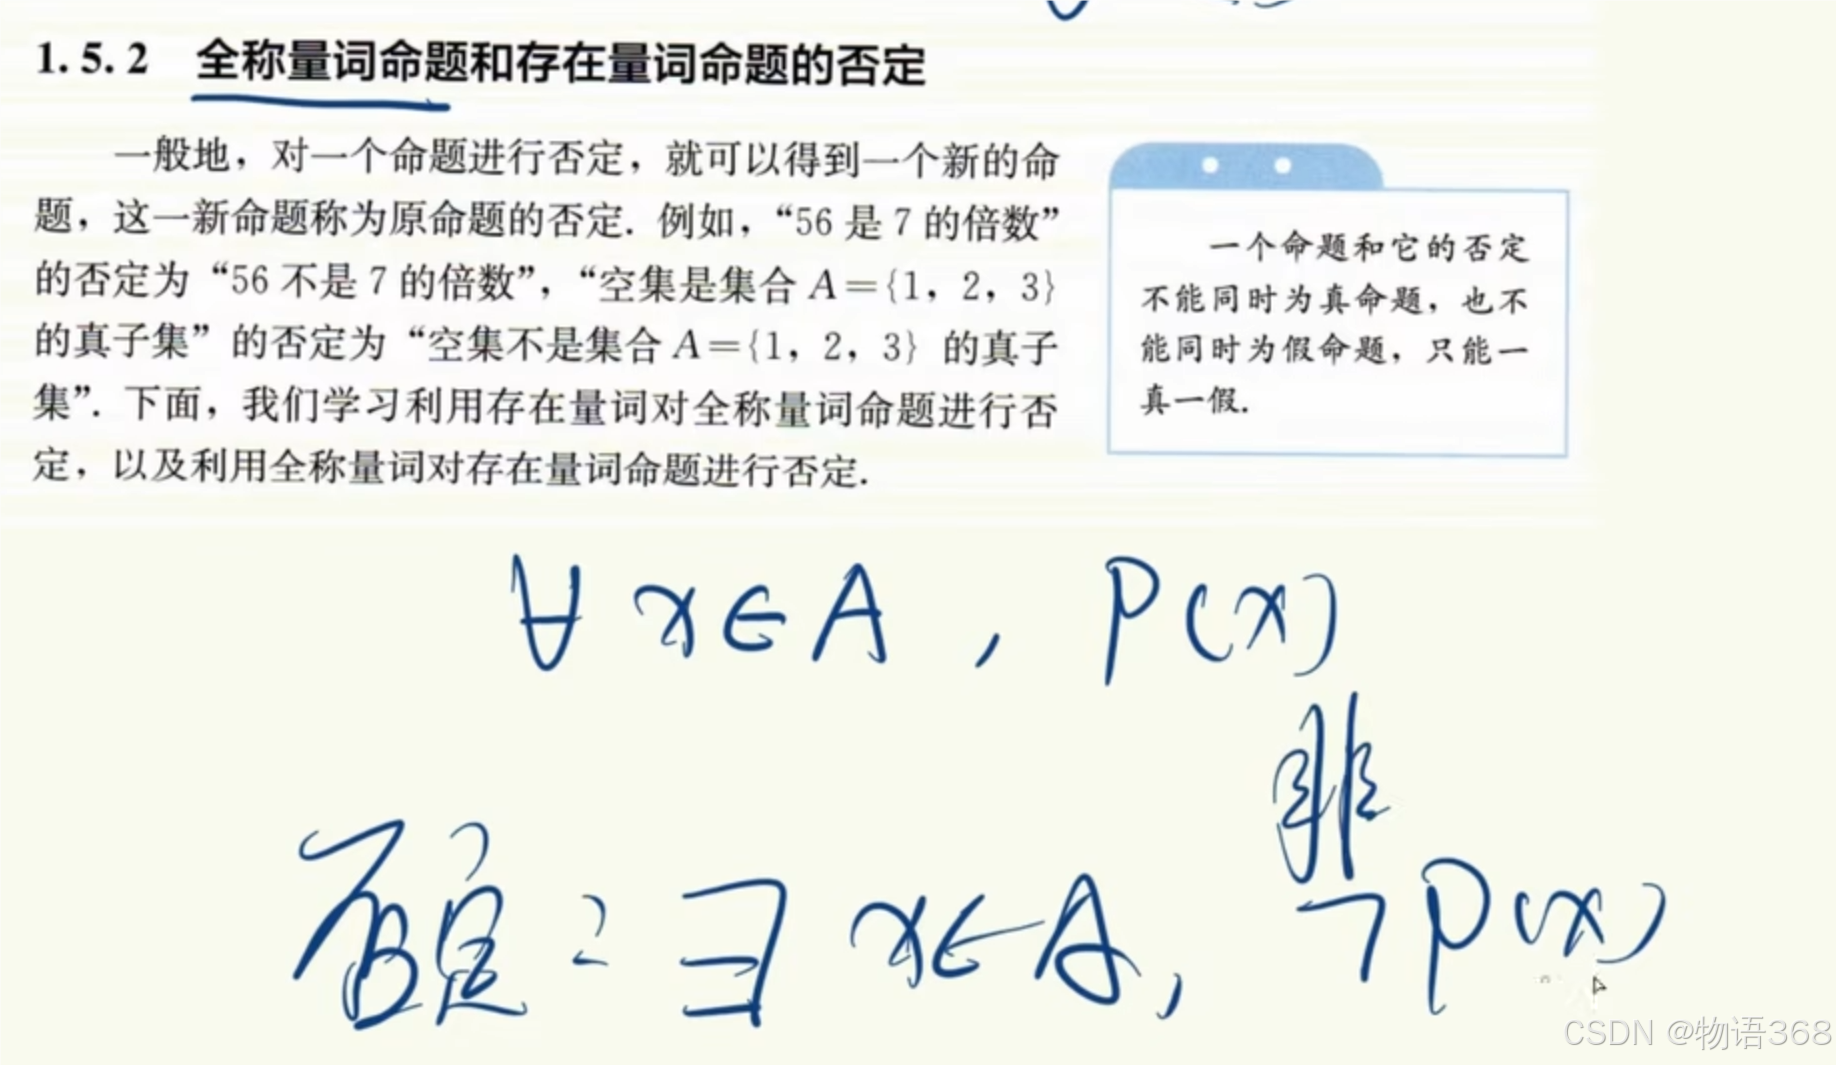 1.5.2 全称量词命题和存在量词命题的否定
一般地，对一个命题进行否定，就可以得到一个新的命
题，这一新命题称为原命题的否定. 例如，“56 是 7 的倍数”
的否定为“56 不是 7 的倍数”，“空集是集合 A={1，2，3}
的真子集”的否定为“空集不是集合 A={1，2，3} 的真子
集”. 下面，我们学习利用存在量词对全称量词命题进行否
定，以及利用全称量词对存在量词命题进行否定.
一个命题和它的否定
不能同时为真命题，也不
能同时为假命题，只能一
真一假.
∀ x∈A , P(x)
非
否定: ∃ x∈A, ¬P(x)
CSDN @物语368